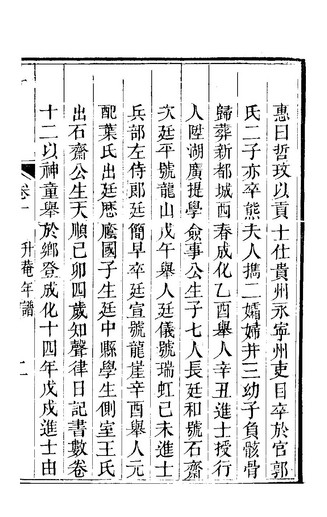 惠曰哲玟以貢士仕貴州永寧州吏目卒於官郭
氏二子亦卒熊夫人攜二孀婦并三幼子負骸骨
歸葬新都城西春成化乙酉舉人辛丑進士授行
人陞湖廣提學僉事公生子七人長廷和號石齋
次廷平號龍山戊午舉人廷儀號瑞虹己未進士
兵部左侍郎廷簡早卒廷宣號龍崖辛酉舉人元
配葉氏出廷歷廕國子生廷中縣學生側室王氏
出石齋公生天順己卯四歲知聲律日記書數卷
十二以神童舉於鄉登成化十四年戊戌進士由
卷一 升菴年譜 二